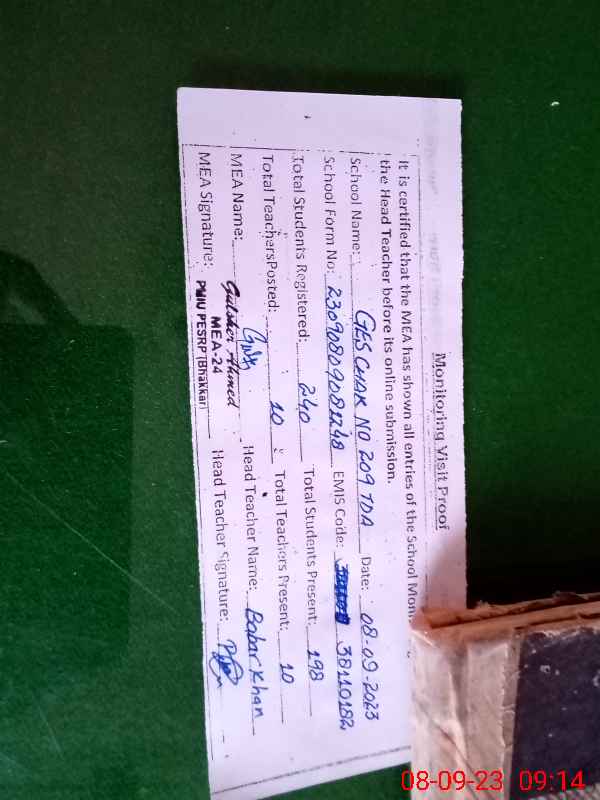 Monitoring Visit Proof
It is certified that the MEA has shown all entries of the School Moni
the Head Teacher before its online submission.
School Name: GES CHAK NO 209 TDA Date: 08-09-2023
School Form No: EMIS Code: 38110182
Total Students Registered: 240 Total Students Present: 198
Total Teachers Posted: 10 Total Teachers Present: 10
MEA Name: Head Teacher Name: Babar Khan
Gulsher Ahmed
MEA Signature: MEA-24 Head Teacher Signature:
PMIU PESRP (Bhakkar)
08-09-23 09:14